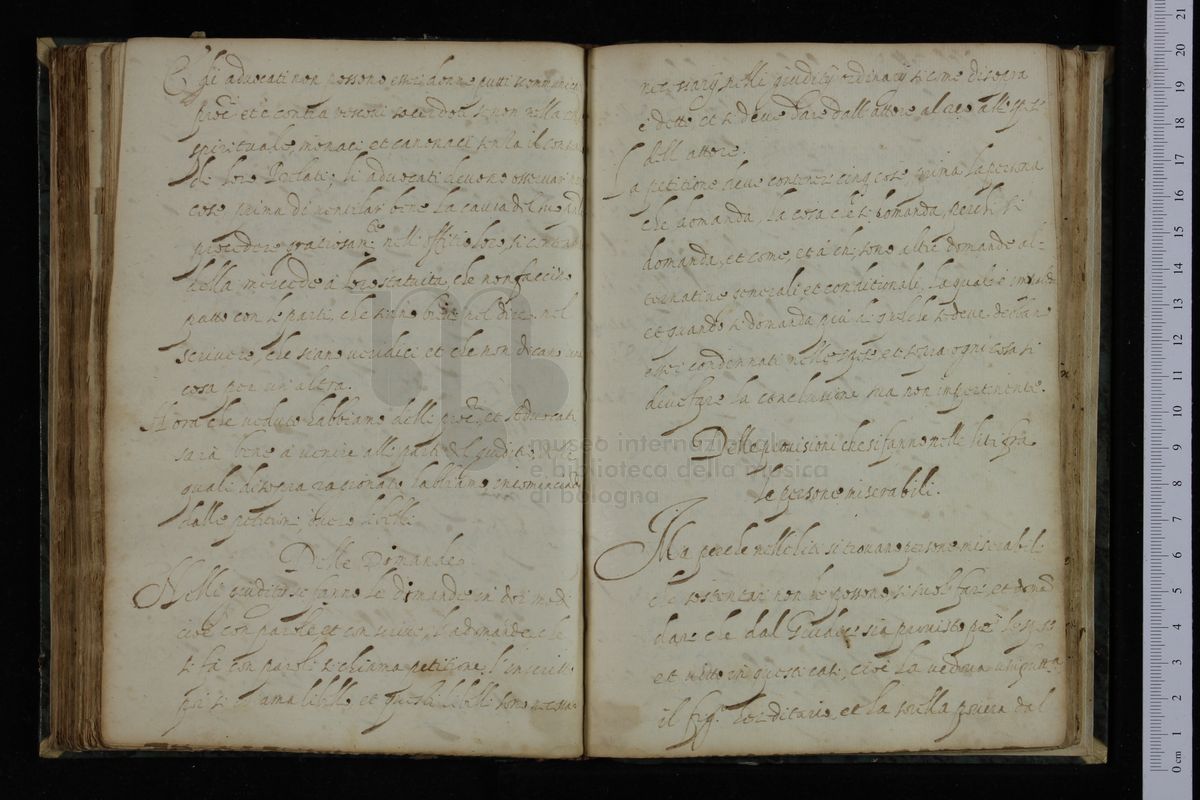 Gli advocati non possono esser donne putti scommunica
proc. et è contra vescovi sacerdoti se non nella
spirituale, monaci et canonaci senza il
di loro Prelati; li advocati devono osservar
cose prima di ventilar bene la causa
procedere graciosam.te nell'offitio loro, si
della mercede à loro statuita, che non faccino
patto con le parti, che siano brevi nel dire nel
scrivere, che siano veridici et che non dicano una
cosa per un'altra.
Hora che veduto habbiamo delli proc.ri et Advocati
sarà bene à venire alle parti del giuditio delle
quali di sopra racionato habbiamo incomenciando
dalle petitioni overo libelli.
Delle Dimande
Nelli giuditii si fanno le dimande in doi modi
cioè con parole et con scriver, la dimanda che
si fà con parole si chiama petitione l'in scritto
poi si chiama libello et questi libelli sono necessa
necessarij nelli giudicij ordinarij si come di sopra
è detto, et si deve dare dall'attore al reo alle spese
dell'attore.
La petitione deve contener cinq cose prima la persona
che domanda, la cosa che si domanda, perche si
domanda, et come, et à chi, sono altre domande al=
ternative generali et conditionali, la quale è
et quando si domanda più di quel che si deve
esser condennati nelle spese et sopra ogni cosa si
deve fare la conclusione sua non impertinente.
Delle provisioni che si fanno nelle liti fra
le persone miserabili.
Ma perche nelle liti si trovano persone miserabili
che sostentar non le possono si suol fare, et
dare che dal Giudice sia provisto per le spese
et vitto in questi casi, cioè la vedova usufrutta
il herditario, et la sorella priva dal
museo internazionale
e biblioteca della musica
di bologna
0 cm 1 2 3 4 5 6 7 8 9 10 11 12 13 14 15 16 17 18 19 20 21